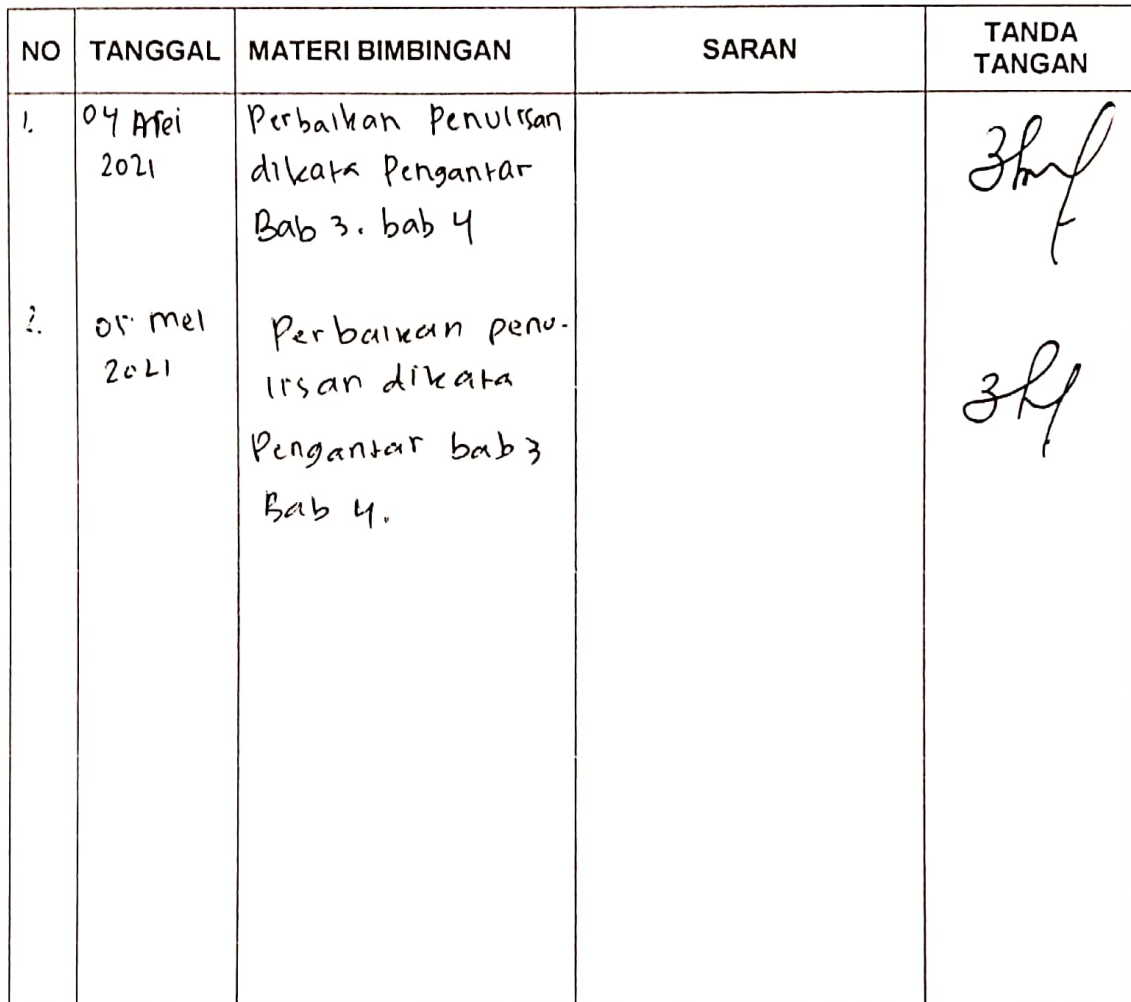 NO TANGGAL MATERI BIMBINGAN SARAN TANDA TANGAN
1. 04 Mei Perbaikan Penulisan
2021 dikata Pengantar
Bab 3. bab 4
2. 05 mei Perbaikan penu-
2021 lisan dikata
Pengantar bab 3
Bab 4.